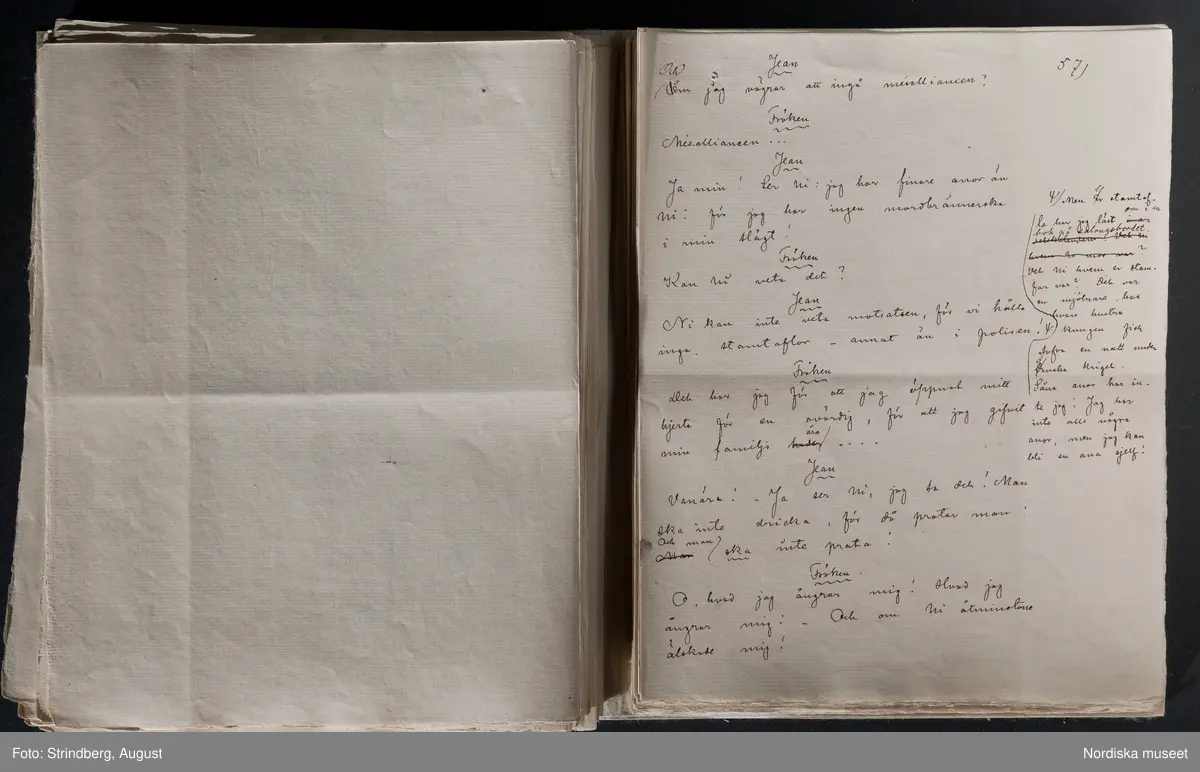 57)
Jean
Om jag vägrar att ingå mésalliancen?
Fröken
Mésalliancen ...
Jean
Ja min! Ser Ni: jag har finare anor än
Ni: för jag har ingen mordbrännerska
i min slägt!
Fröken
Kan Ni veta det?
Jean
Ni kan inte veta motsatsen, för vi hålla
inga stamtaflor – annat än i polisen!
Fröken
Det har jag för att jag öppnat mitt
hjerta för en ovärdig, för att jag gifvit
min familjs ära ....
Jean
Vanära! – Ja ser Ni, jag sa det! Man
ska inte dricka, för då pratar man!
Och man
Man ska inte prata!
Fröken.
O, hvad jag ångrar mig! Hvad jag
ångrar mig! – Och om Ni åtminstone
älskade mig!
Men Er stamtaf-
la har jag läst i en
bok på salongsbordet.
hvem Er mor var?
Vet Ni hvem er stam-
far var? Det var
en mjölnare, hos
hvars hustru
kungen fick
sofva en natt under
Danska kriget.
Såna anor har in-
te jag! Jag har
inte alls några
anor, men jag kan
bli en ana sjelf!
Foto: Strindberg, August
Nordiska museet